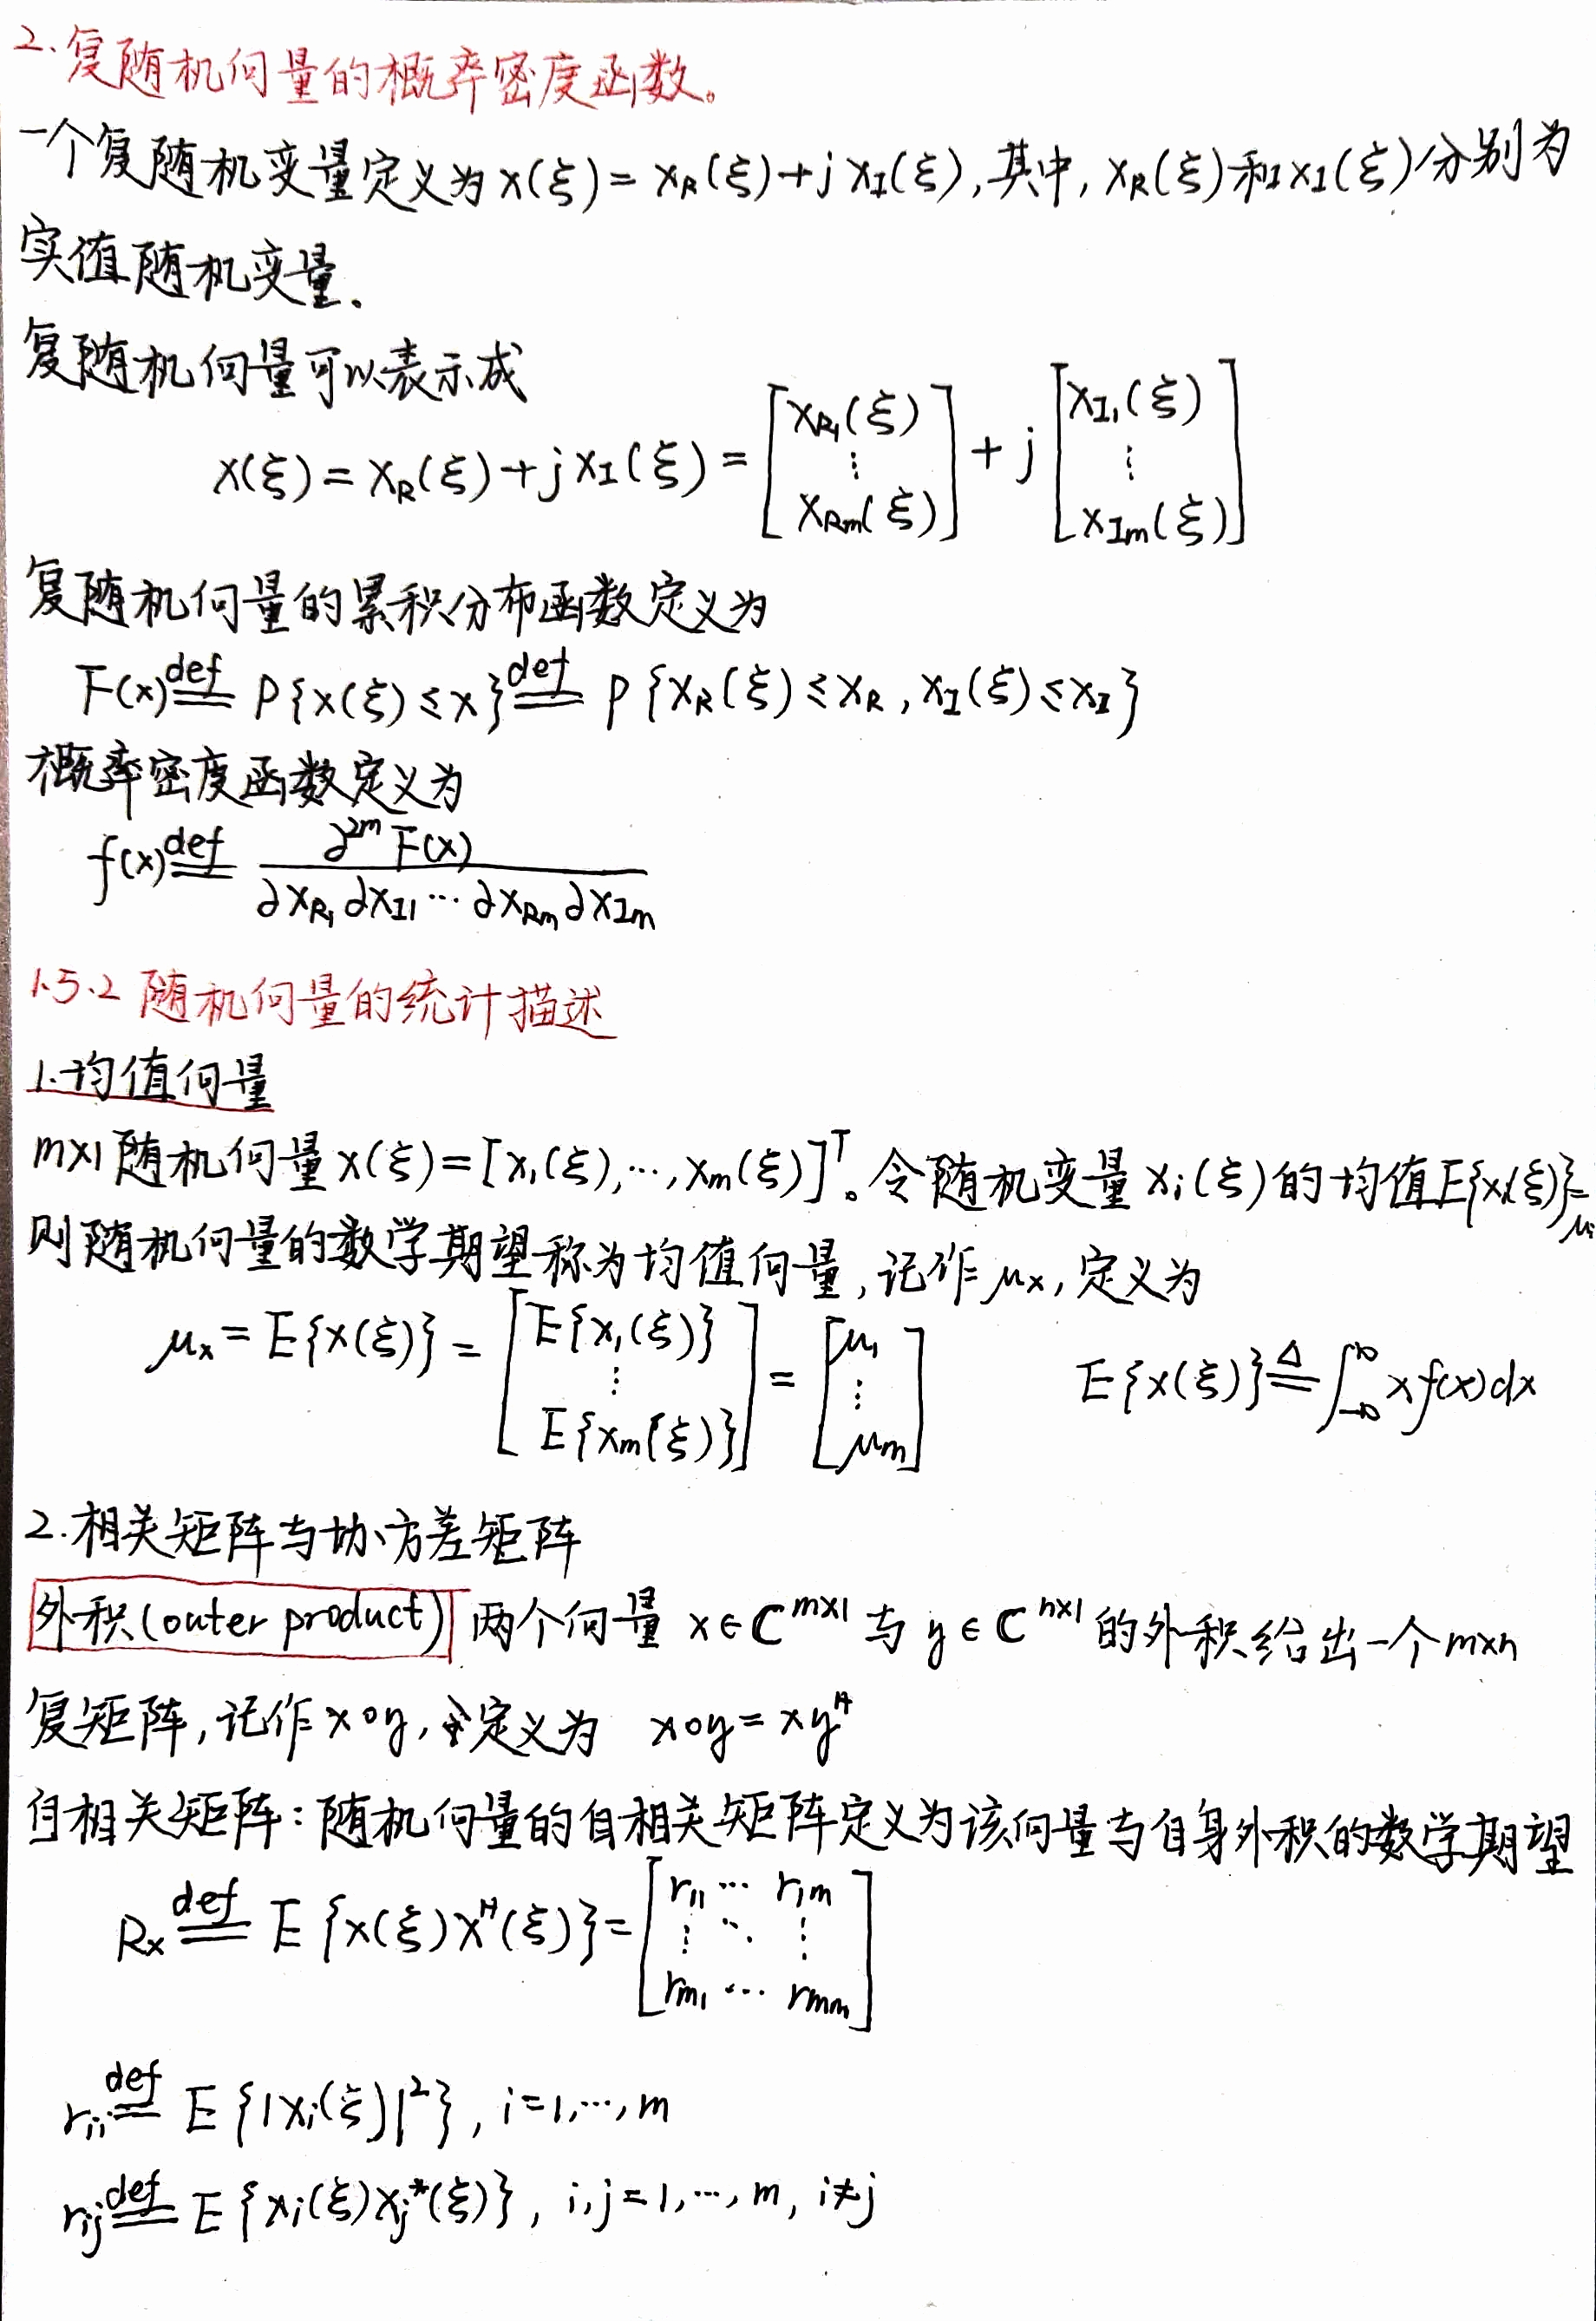 2.复随机向量的概率密度函数。
一个复随机变量定义为x(ξ)= x_R(ξ)+j x_I(ξ),其中, x_R(ξ)和x_I(ξ)分别为
实值随机变量.
复随机向量可以表示成
x(ξ)= x_R(ξ)+j x_I(ξ)= [x_R1(ξ) ⋮ x_Rm(ξ)] + j [x_I1(ξ) ⋮ x_Im(ξ)]
复随机向量的累积分布函数定义为
F(x) def= P{x(ξ)≤x} def= P{x_R(ξ)≤x_R, x_I(ξ)≤x_I}
概率密度函数定义为
f(x) def= ∂^2m F(x) / ∂x_R1 ∂x_I1 ⋯ ∂x_Rm ∂x_Im
1.5.2 随机向量的统计描述
1.均值向量
m×1随机向量x(ξ)=[x_1(ξ),⋯,x_m(ξ)]^T。令随机变量x_i(ξ)的均值E{x_i(ξ)}=μ_i
则随机向量的数学期望称为均值向量,记作μ_x,定义为
μ_x = E{x(ξ)} = [E{x_1(ξ)} ⋮ E{x_m(ξ)}] = [μ_1 ⋮ μ_m] E{x(ξ)} ≜ ∫_-∞^∞ x f(x)dx
2.相关矩阵与协方差矩阵
外积(outer product) 两个向量 x∈C^m×1 与 y∈C^n×1 的外积给出一个m×n
复矩阵,记作x∘y,定义为 x∘y = xy^H
自相关矩阵:随机向量的自相关矩阵定义为该向量与自身外积的数学期望
R_x def= E{x(ξ)x^H(ξ)}= [r_11 ⋯ r_1m ⋮ ⋱ ⋮ r_m1 ⋯ r_mm]
r_ii def= E{|x_i(ξ)|^2}, i=1,⋯,m
r_ij def= E{x_i(ξ)x_j^*(ξ)}, i,j=1,⋯,m, i≠j